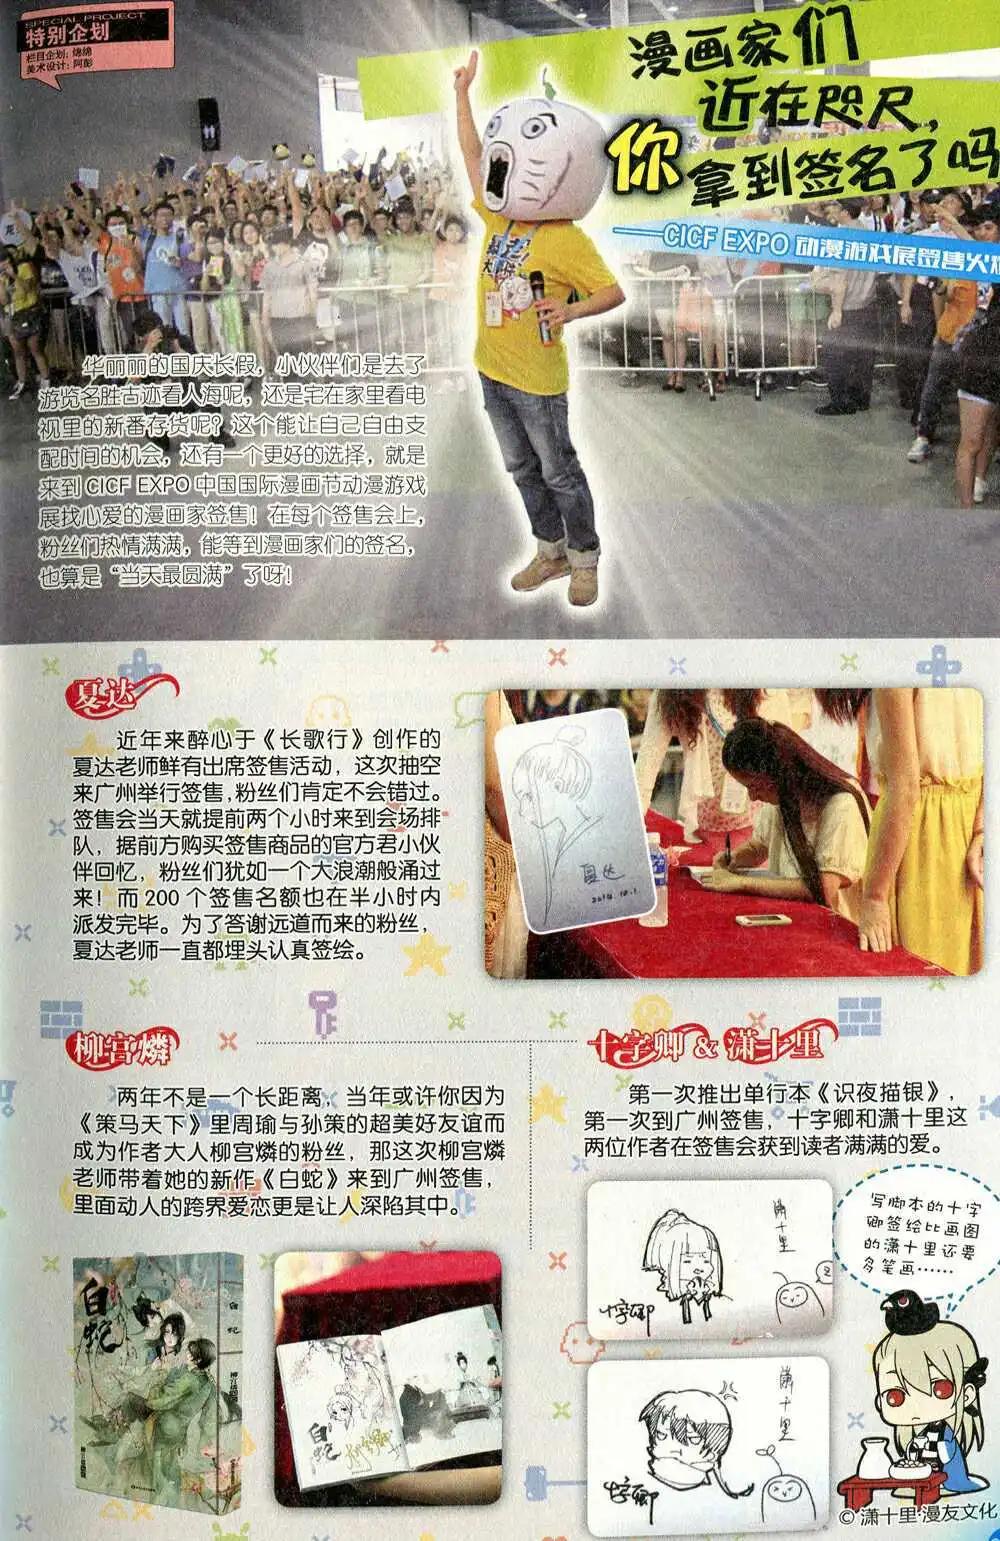 SPECIAL PROJECT
特别企划
栏目企划：绵绵
美术设计：阿彭
漫画家们
近在咫尺，
你拿到签名了吗
——CICF EXPO 动漫游戏展签售火爆
华丽丽的国庆长假，小伙伴们是去了
游览名胜古迹看人海呢，还是宅在家里看电
视里的新番存货呢？这个能让自己自由支
配时间的机会，还有一个更好的选择，就是
来到 CICF EXPO 中国国际漫画节动漫游戏
展找心爱的漫画家签售！在每个签售会上，
粉丝们热情满满，能等到漫画家们的签名，
也算是“当天最圆满”了呀！
夏达
近年来醉心于《长歌行》创作的
夏达老师鲜有出席签售活动，这次抽空
来广州举行签售，粉丝们肯定不会错过。
签售会当天就提前两个小时来到会场排
队，据前方购买签售商品的官方君小伙
伴回忆，粉丝们犹如一个大浪潮般涌过
来！而 200 个签售名额也在半小时内
派发完毕。为了答谢远道而来的粉丝，
夏达老师一直都埋头认真签绘。
夏达
2014.10.1.
柳宫燐
两年不是一个长距离，当年或许你因为
《策马天下》里周瑜与孙策的超美好友谊而
成为作者大人柳宫燐的粉丝，那这次柳宫燐
老师带着她的新作《白蛇》来到广州签售，
里面动人的跨界爱恋更是让人深陷其中。
白蛇
白蛇
白蛇
十字卿 & 潇十里
第一次推出单行本《识夜描银》，
第一次到广州签售，十字卿和潇十里这
两位作者在签售会获到读者满满的爱。
潇十里
十字卿
潇十里
十字卿
写脚本的十字
卿签绘比画图
的潇十里还要
多笔画……
© 潇十里·漫友文化